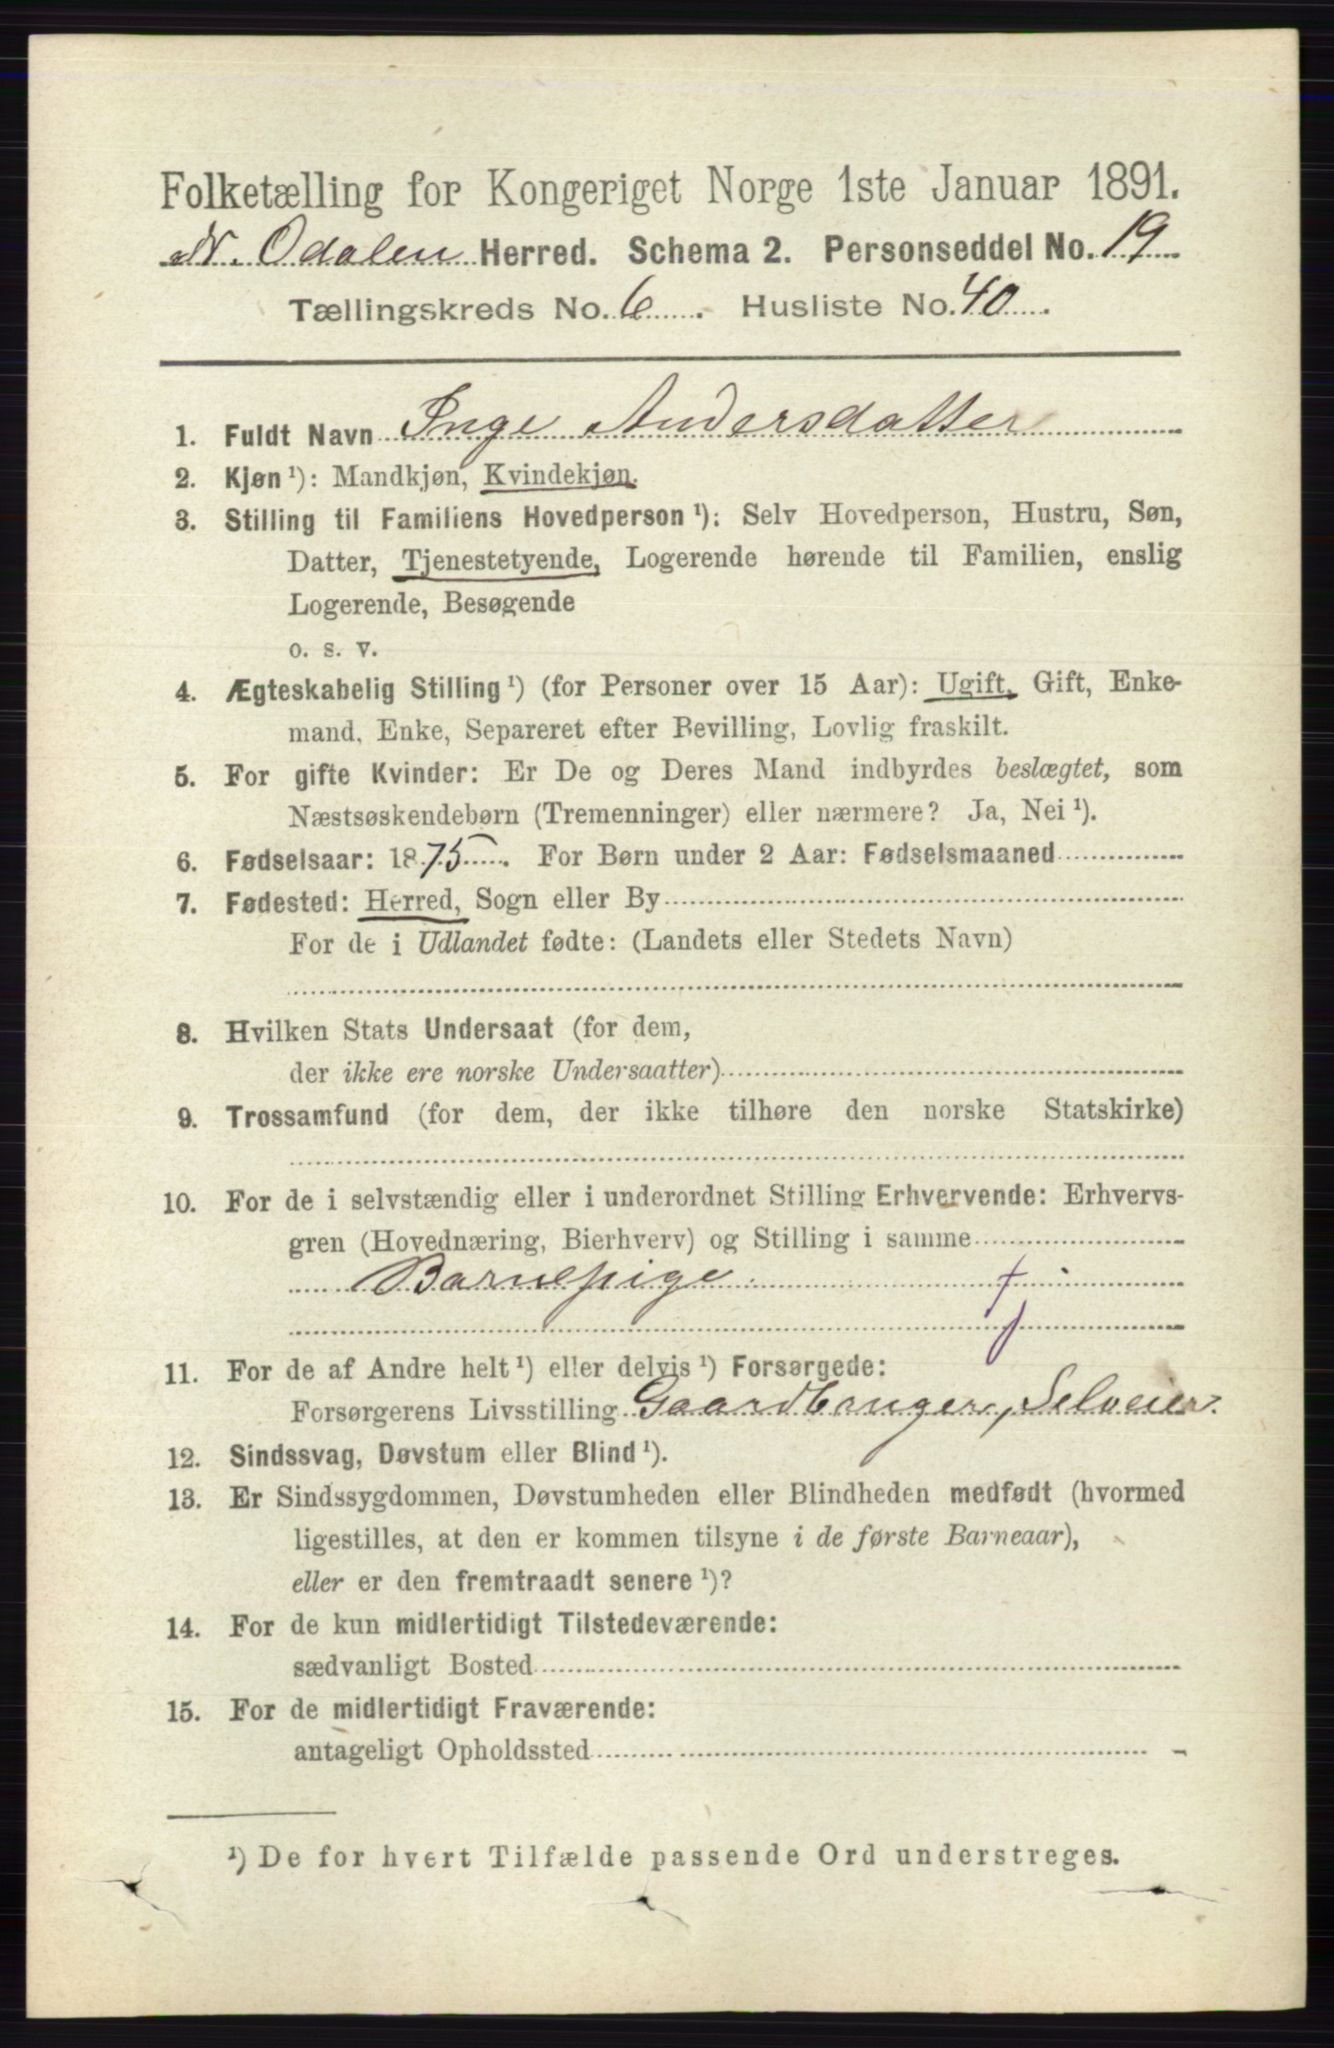 Folketælling for Kongeriget Norge 1ste Januar 1891.
N. Odalen Herred. Schema 2. Personseddel No. 19
Tællingskreds No. 6. Husliste No. 40.
1. Fuldt Navn Inge Andersdatter
2. Kjøn ¹): Mandkjøn, Kvindekjøn.
3. Stilling til Familiens Hovedperson ¹): Selv Hovedperson, Hustru, Søn,
Datter, Tjenestetyende, Logerende hørende til Familien, enslig
Logerende, Besøgende
o. s. v.
4. Ægteskabelig Stilling ¹) (for Personer over 15 Aar): Ugift, Gift, Enke-
mand, Enke, Separeret efter Bevilling, Lovlig fraskilt.
5. For gifte Kvinder: Er De og Deres Mand indbyrdes beslægtet, som
Næstsøskendebørn (Tremenninger) eller nærmere? Ja, Nei ¹).
6. Fødselsaar: 1875. For Børn under 2 Aar: Fødselsmaaned
7. Fødested: Herred, Sogn eller By
For de i Udlandet fødte: (Landets eller Stedets Navn)
8. Hvilken Stats Undersaat (for dem,
der ikke ere norske Undersaatter)
9. Trossamfund (for dem, der ikke tilhøre den norske Statskirke)
10. For de i selvstændig eller i underordnet Stilling Erhvervende: Erhvervs-
gren (Hovednæring, Bierhverv) og Stilling i samme
Barnepige
11. For de af Andre helt ¹) eller delvis ¹) Forsørgede:
Forsørgerens Livsstilling Gaardbruger, Selveier.
12. Sindssvag, Døvstum eller Blind ¹).
13. Er Sindssygdommen, Døvstumheden eller Blindheden medfødt (hvormed
ligestilles, at den er kommen tilsyne i de første Barneaar),
eller er den fremtraadt senere ¹)?
14. For de kun midlertidigt Tilstedeværende:
sædvanligt Bosted
15. For de midlertidigt Fraværende:
antageligt Opholdssted
¹) De for hvert Tilfælde passende Ord understreges.